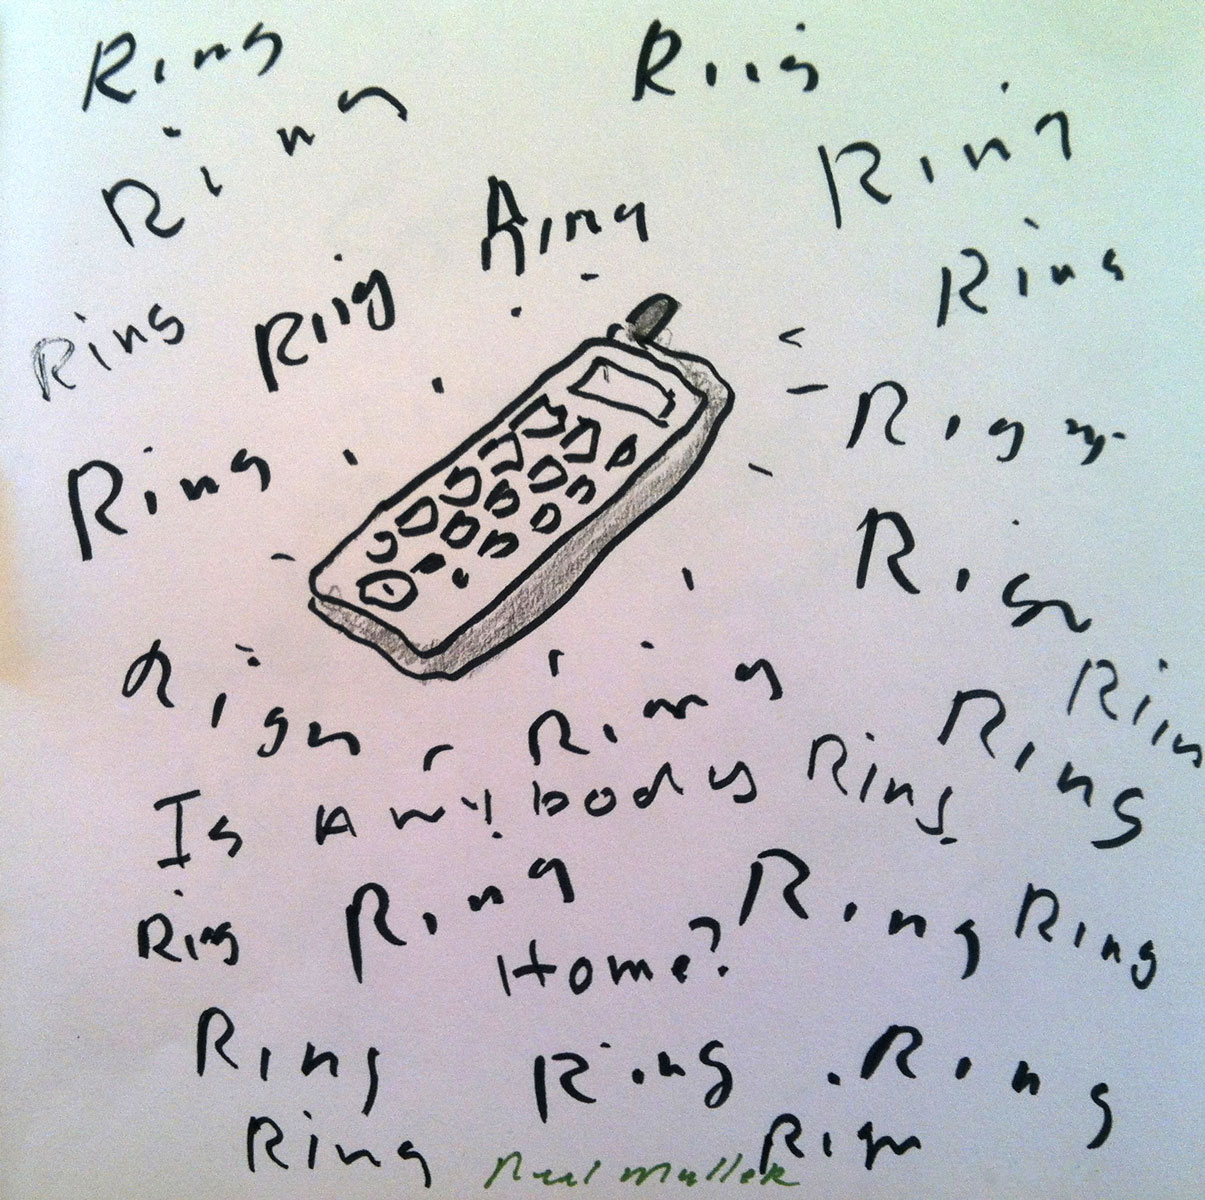 Ring Riig
Ring Ring
Ring Riig Ring Ring
Ring Rign
Rign
Rign Ring Ring Riin
Is Anybody Ring
Ring Ring Ring Ring
Home?
Ring Ring Ring
Ring Rign